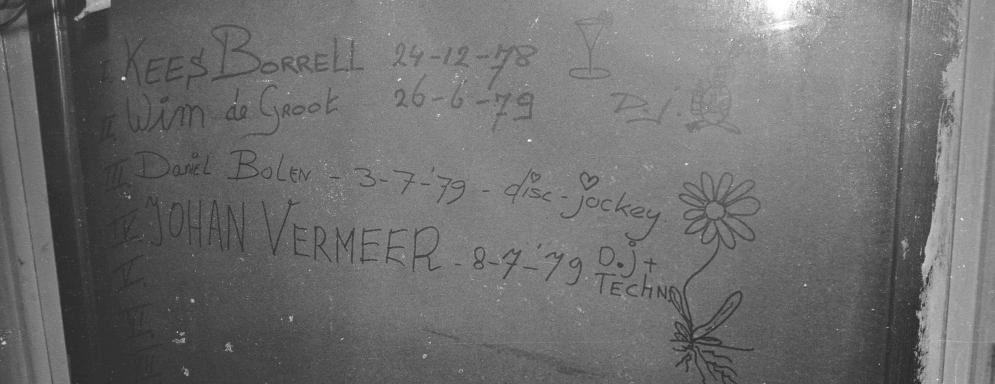 I. KEES BORRELL 24-12-78
II Wim de Groot 26-6-79 D.j.
III Daniel BOLEN - 3-7-'79 - disc-jockey
IV JOHAN VERMEER - 8-7-'79 D.j +
TECHN
V.
VI.